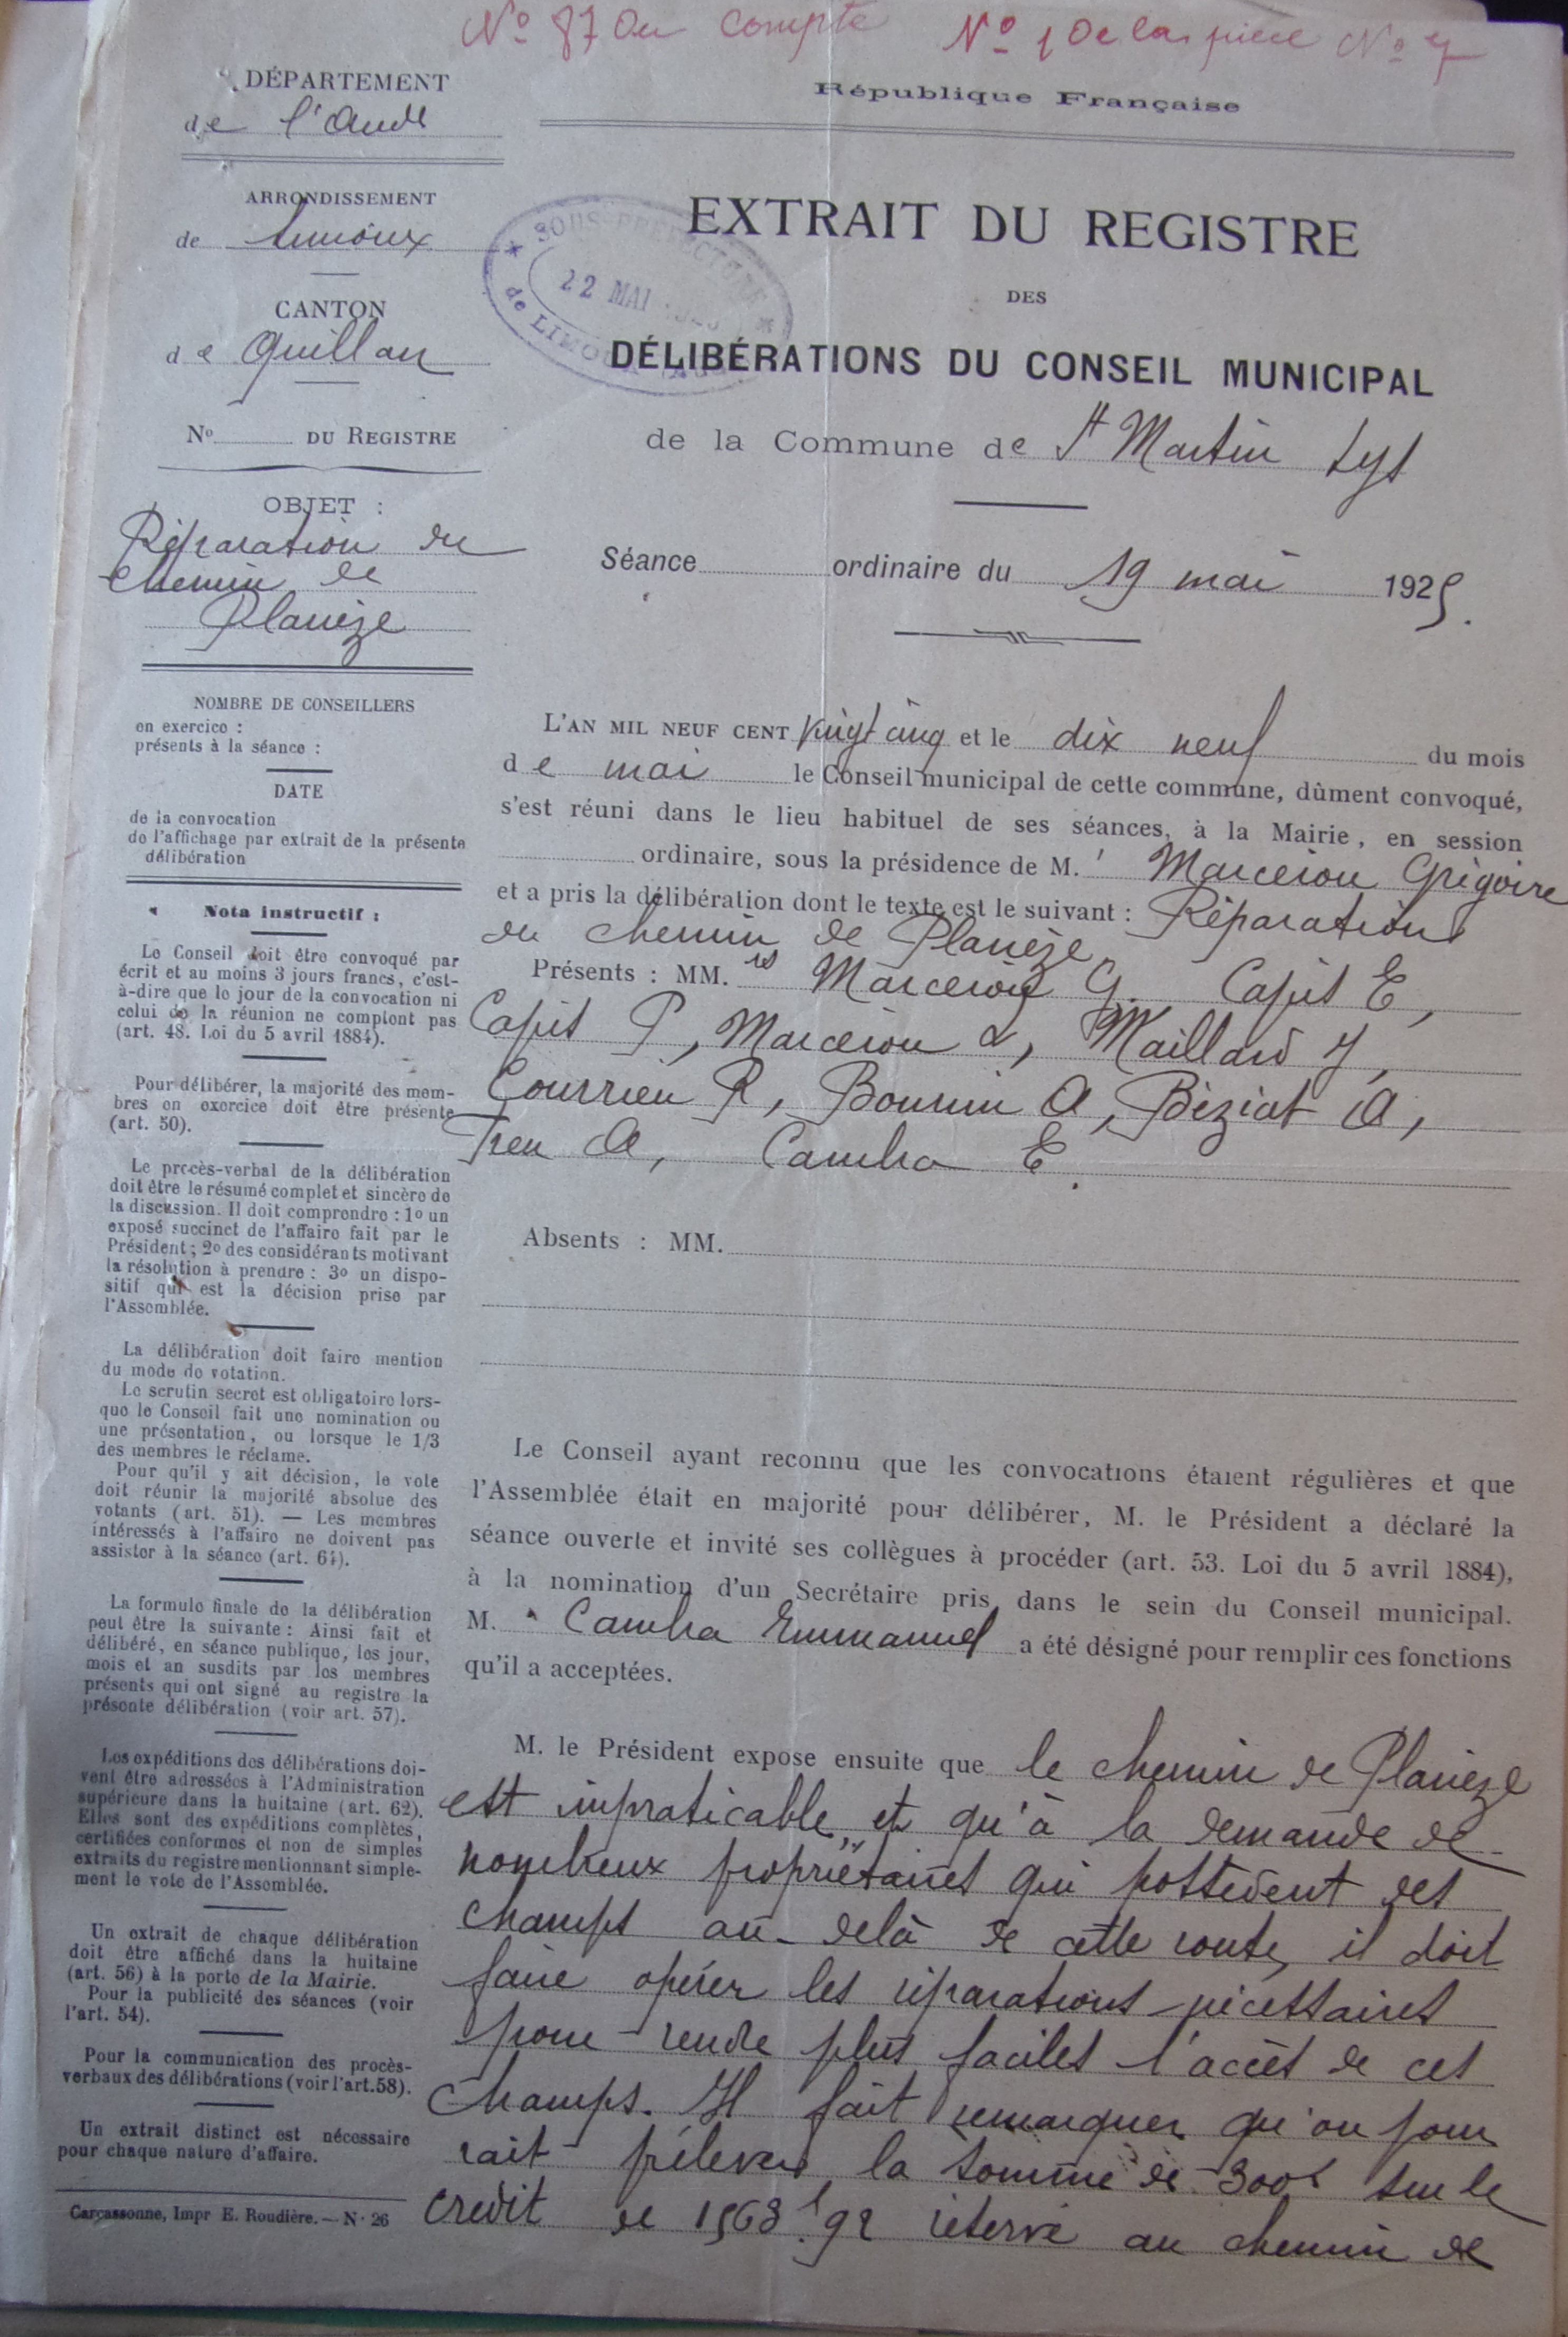 No 87 Du Compte No 1 De la pièce No 7
DÉPARTEMENT
de l'Aude
ARRONDISSEMENT
de Limoux
CANTON
de Quillan
No DU REGISTRE
OBJET :
Réparation du
chemin de
Planèze
NOMBRE DE CONSEILLERS
en exercice :
présents à la séance :
DATE
de la convocation
de l'affichage par extrait de la présente
délibération
Nota instructif :
Le Conseil doit être convoqué par
écrit et au moins 3 jours francs, c'est-
à-dire que le jour de la convocation ni
celui de la réunion ne comptent pas
(art. 48. Loi du 5 avril 1884).
Pour délibérer, la majorité des mem-
bres en exercice doit être présente
(art. 50).
Le procès-verbal de la délibération
doit être le résumé complet et sincère de
la discussion. Il doit comprendre : 1o un
exposé succinct de l'affaire fait par le
Président ; 2o des considérants motivant
la résolution à prendre : 3o un dispo-
sitif qui est la décision prise par
l'Assemblée.
La délibération doit faire mention
du mode de votation.
Le scrutin secret est obligatoire lors-
que le Conseil fait une nomination ou
une présentation, ou lorsque le 1/3
des membres le réclame.
Pour qu'il y ait décision, le vote
doit réunir la majorité absolue des
votants (art. 51). — Les membres
intéressés à l'affaire ne doivent pas
assister à la séance (art. 64).
La formule finale de la délibération
peut être la suivante : Ainsi fait et
délibéré, en séance publique, les jour,
mois et an susdits par les membres
présents qui ont signé au registre la
présente délibération (voir art. 57).
Les expéditions des délibérations doi-
vent être adressées à l'Administration
supérieure dans la huitaine (art. 62).
Elles sont des expéditions complètes,
certifiées conformes et non de simples
extraits du registre mentionnant simple-
ment le vote de l'Assemblée.
Un extrait de chaque délibération
doit être affiché dans la huitaine
(art. 56) à la porte de la Mairie.
Pour la publicité des séances (voir
l'art. 54).
Pour la communication des procès-
verbaux des délibérations (voir l'art.58).
Un extrait distinct est nécessaire
pour chaque nature d'affaire.
Carcassonne, Impr E. Roudière. — N· 26
République Française
SOUS-PRÉFECTURE
22 MAI
de LIMOUX
EXTRAIT DU REGISTRE
DES
DÉLIBÉRATIONS DU CONSEIL MUNICIPAL
de la Commune de St Martin Lys
Séance ordinaire du 19 mai 1925.
L'AN MIL NEUF CENT vingt cinq et le dix neuf du mois
de mai le Conseil municipal de cette commune, dûment convoqué,
s'est réuni dans le lieu habituel de ses séances, à la Mairie, en session
ordinaire, sous la présidence de M. Marcerou Grégoire
et a pris la délibération dont le texte est le suivant : Réparation
du chemin de Planèze
Présents : MM.rs Marcerou G. Capit E,
Capit P, Marcerou L, Maillard J,
Courrieu R, Bounin A, Béziat A,
Treu A, Cambra E.
Absents : MM.
Le Conseil ayant reconnu que les convocations étaient régulières et que
l'Assemblée était en majorité pour délibérer, M. le Président a déclaré la
séance ouverte et invité ses collègues à procéder (art. 53. Loi du 5 avril 1884),
à la nomination d'un Secrétaire pris dans le sein du Conseil municipal.
M. Cambra Emmanuel a été désigné pour remplir ces fonctions
qu'il a acceptées.
M. le Président expose ensuite que le chemin de Planèze
est impraticable et qu'à la demande de
nombreux propriétaires qui possèdent des
champs au-delà de cette route, il doit
faire opérer les réparations nécessaires
pour rendre plus faciles l'accès de ces
champs. Il fait remarquer qu'on pour
rait prélever la somme de 300f sur le
crédit de 1568f.92 réservé au chemin de